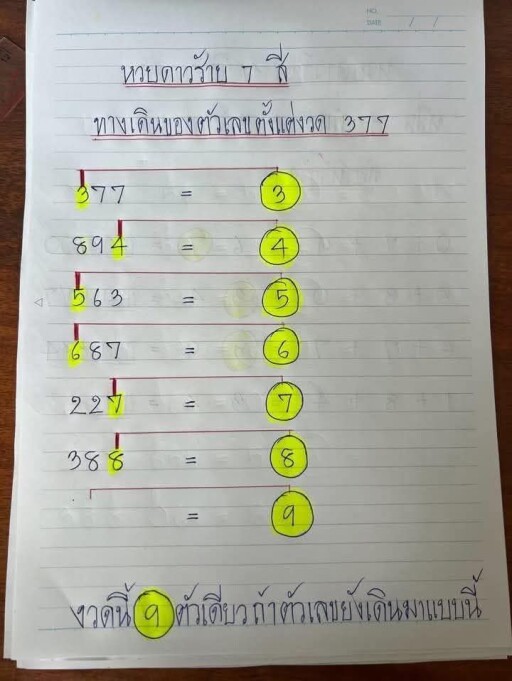 NO.
DATE / /
หวยดาวร้าย 7 สี
ทางเดินของตัวเลขตั้งแต่งวด 377
377 = 3
894 = 4
563 = 5
687 = 6
227 = 7
388 = 8
= 9
งวดนี้ 9 ตัวเดียวถ้าตัวเลขยังเดินมาแบบนี้